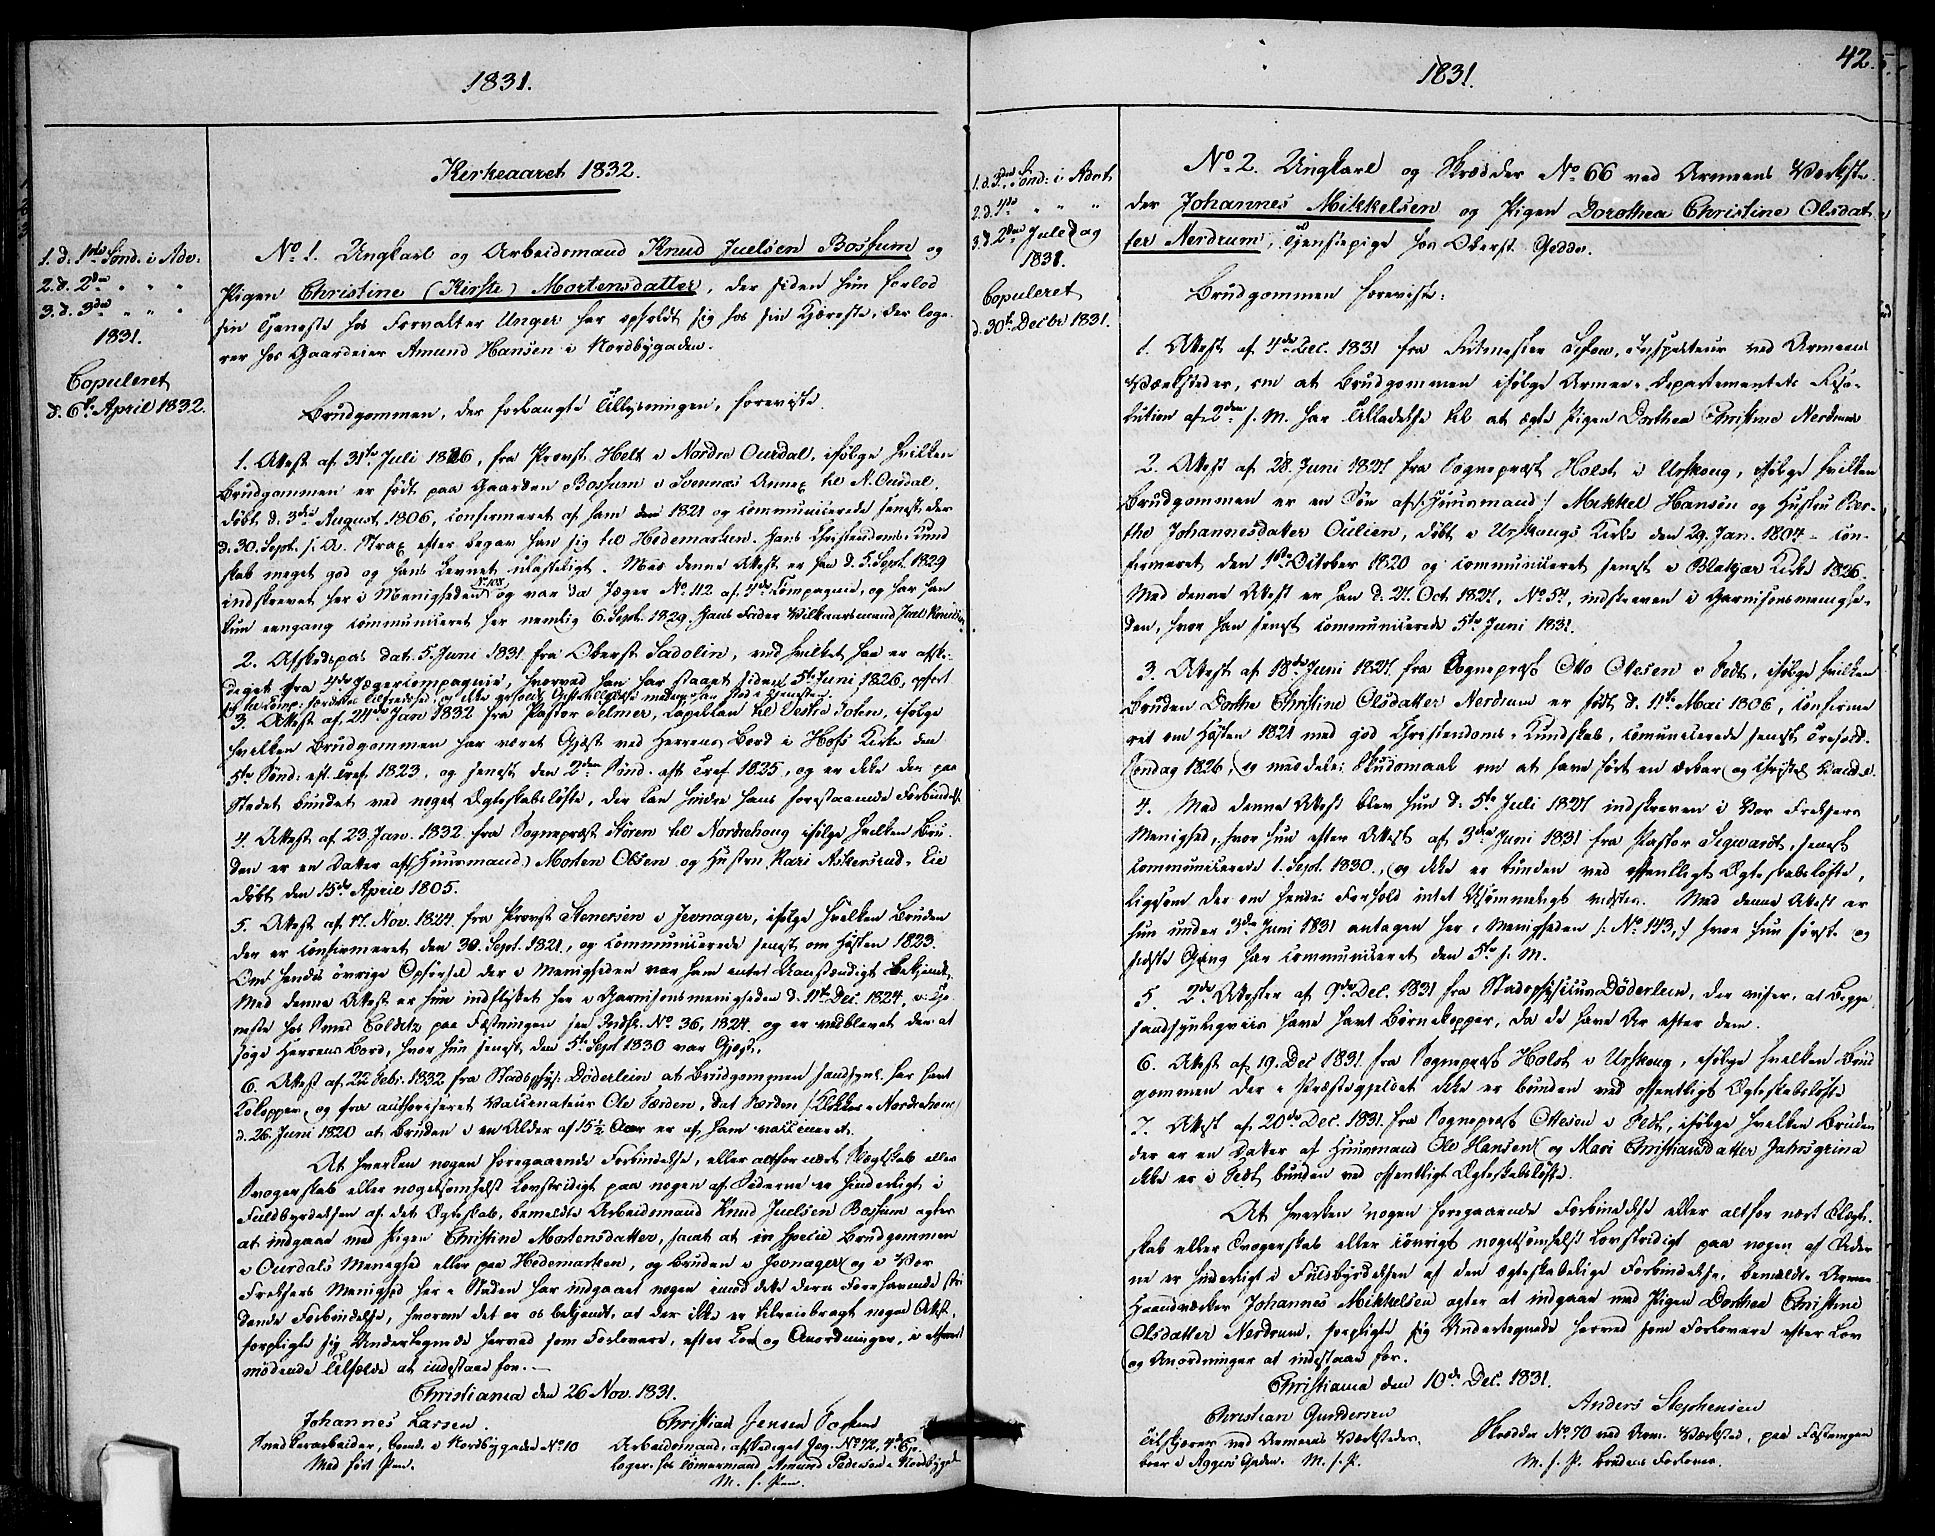 1831.
Kirkeaaret 1832.
1. d. 1ste Sønd. i Adv.
2. d. 2den " " "
3. d. 3die " " "
1831.
Copuleret
d. 6te April 1832.
No 1. Ungkarl og Arbeidsmand Knud Juelsen Bossum og
Pigen Christine (Kirsti) Mortensdatter, der siden hun forlod
sin Tjeneste hos Forvalter Unger har opholdt sig hos sin Kjæreste, der loge-
rer hos Gaardeier Amund Hansen i Nordbygaden.
Brudgommen, der forlangte Tillysningen, foreviste.
1. Attest af 31te Juli 1826, fra Provst Helt i Nordre Ourdal, ifølge hvilken
Brudgommen er født paa Gaarden Bossum i Svennæs Annex til N. Ourdal,
døbt d. 3die August 1806, confirmeret af ham den 1821 og communicerede senest der
d. 30. Sept. s. A. Strax efter begav han sig til Hedemarken. Hans Christendoms-Kund-
skab meget god og hans Levnet ulasteligt. Med denne Attest er han d. 5. Sept. 1829
indskrevet her i Menigheden No 108 og var da Jæger No 42 af 4de Compagnie, og har han
kun eengang communiceret her nemlig 6. Sept. 1829. Hans Fader Vilkaarsmand Juel
2. Afskedspas dat. 5. Juni 1831 fra Oberst Sadolin, ved hvilket han er afske-
diget fra 4de Jægercompagnie, hvorved han har staaet siden 5te Juni 1826, opført
3. Attest af 24de Jan 1832 fra Pastor Selmer, Capellan til Vestre Toten, ifølge
hvilken Brudgommen har været Gjæst ved Herrens Bord i Hofs Kirke den
5te Sønd. eft. Tref. 1823, og senest den 2den Sønd. eft Tref 1825, og er ikke der paa
Stedet bundet ved noget Ægteskabsløfte, der kan hindre hans forestaaende Forbindelse.
4. Attest af 23. Jan. 1832 fra Sognepræst Støren til Norderhoug ifølge hvilken Bru-
den er en Datter af (Huusmand) Morten Olsen og Hustru Kari Askersrud-Eie
døbt den 15de April 1805.
5. Attest af 17. Nov. 1824 fra Provst Stenersen i Jevnager, ifølge hvilken Bruden
der er confirmeret den 30. Sept. 1821, og communicerede senest om Høsten 1823.
Om hendes øvrige Opførsel der i Menigheden var ham intet Uanstændigt bekjendt.
Med denne Attest er hun indflyttet her i Garnisonsmenigheden d. 11te Dec. 1824, i Tje-
neste hos Smed Colditz paa Fæstningen see Indfl. No. 36, 1824 og er vedblevet der at
søge Herrens Bord, hvor hun senest den 5te Sept 1830 var Gjæst.
6. Attest af 22 Febr. 1832 fra Stadsphys: Døderlein at Brudgommen sandsynl. har havt
Kokopper, og fra authoriseret Vaccinateur Ole Færden, dat. Færden (Klokker i Norderhoug)
d. 26. Juni 1820 at Bruden i en Alder af 15½ Aar er af ham vaccineret.
At hverken nogen foregaaende Forbindelse, eller altfor nært Slægtskab eller
Svogerskab eller nogetsomhelst Lovstridigt paa nogen af Siderne er hinderligt i
Fuldbyrdelsen af det Ægteskab, bemeldte Arbeidsmand Knud Juelsen Bossum agter
at indgaae med Pigen Christine Mortensdatter, samt at in specie Brudgommen
i Ourdals Menighed eller paa Hedemarken, og Bruden i Jevnager og i Vor
Frelsers Menighed her i Staden har indgaaet nogen imod dette deres Forehavende stri-
dende Forbindelse, hvorom det er os bekjendt, at der ikke er tilveiebragt nogen Attest,
forpligte sig Undertegnede herved som Forlovere, efter Lov og Anordninger, i ethvert
mødende Tilfælde at indestaae for.
Christiania den 26 Nov. 1831.
Johannes Larsen
Snedkerarbeider, boende i Nordbygaden No 10
Med ført Pen.
Christian Jensen
Arbeidsmand, afskediget Jæg. No 72, 4de Cp.
loger. hos Tømmermand Amund Pedersen i Nordbygad.
M. f. Pen.
42.
1831.
1. d. 3die Sønd: i Advt
2. d. 4de " " "
3. d. 2den Juledag
1831.
Copuleret
d. 30te Decbr 1831.
No 2. Ungkarl og Skrædder No 66 ved Armeens Værkste-
der Johannes Mikkelsen og Pigen Dorothea Christine Olsdat-
ter Nerdrum, Tjenstepige hos Oberst Gedde.
Brudgommen foreviste:
1. Attest af 4de Dec. 1831 fra Ritmester Sissow, Inspecteur ved Armeens
Værksteder, om at Brudgommen ifølge Armee-Departementets Reso-
lution af 2den s. M. har Tilladelse til at ægte Pigen Dorthea Christine Nerdrum
2. Attest af 28. Juni 1827 fra Sognepræst Holst i Urskoug, ifølge hvilken
Brudgommen er en Søn af (Huusmand) Mikkel Hansen og Hustru Ber-
the Johannesdatter Oulien, døbt i Urskougs Kirke den 29. Jan. 1804 - con-
firmeret den 1ste October 1820 og communiceret senest i Blakjær Kirke 1826.
Med denne Attest er han d. 27. Oct. 1827, No 57, indskreven i Garnisonsmenighe-
den, hvor han senest communicerede 5te Juni 1831.
3. Attest af 18de Juni 1827 fra Sognepræst Otto Ottesen i Fedt, ifølge hvilken
Bruden Dorthe Christine Olsdatter Nerdrum er født d. 11te Mai 1806, confirme-
ret om Høsten 1821 med god Christendoms-Kundskab, communicerede senest Trefold.
Søndag 1826, og meddeles Skudsmaal om at have ført en ærbar og christel. Vandel.
4. Med denne Attest blev hun d. 5te Juli 1827 indskreven i Vor Frelsers
Menighed, hvor hun efter Attest af 3die Juni 1831 fra Pastor Segwardt, senest
communicerede 1. Sept. 1830, og ikke er bunden ved offentligt Ægteskabsløfte,
ligesom der om hendes Forhold intet Usømmeligt vidstes. Med denne Attest er
hun under 3die Juni 1831 antagen her i Menigheden (No 143,) hvor hun første og
sidste Gang har communiceret den 5te s. M.
5. 2de Attester af 9de Dec. 1831 fra Stadsphysicus Døderlein, der viser, at Begge
sandsynligviis have havt Børnekopper, da de have Ar efter dem.
6. Attest af 19. Dec 1831 fra Sognepræst Holst i Urskoug, ifølge hvilken Brud-
gommen der i Præstegjeldet ikke er bunden ved offentligt Ægteskabsløfte
7. Attest af 20de Dec. 1831 fra Sognepræst Ottesen i Fedt, ifølge hvilken Bruden
der er en Datter af Huusmand Ole Hansen og Mari Christiansdatter Jahrsgrina
ikke er i Fedt bunden ved offentligt Ægteskabsløfte.
At hverken nogen foregaaende Forbindelse eller altfor nært Slægt-
skab eller Svogerskab eller iøvrigt nogetsomhelst Lovstridigt paa nogen af Sider-
ne er hinderligt i Fuldbyrdelsen af den ægteskabelige Forbindelse, bemeldte Armee-
Haandværker Johannes Mikkelsen agter at indgaae med Pigen Dorthea Christine
Olsdatter Nerdrum, forpligte sig Undertegnede herved som Forlovere efter Lov
og Anordninger at indestaae for.
Christiania den 10de Dec. 1831.
Christian Gundersen
Tilskjærer ved Armeens Værksteder.
boer i Aggers Gaden. M. f. P.
Anders Stephensen
Skrædder No 70 ved Arm. Værksted, paa Fæstningen
M. f. P. Brudens Forlover.